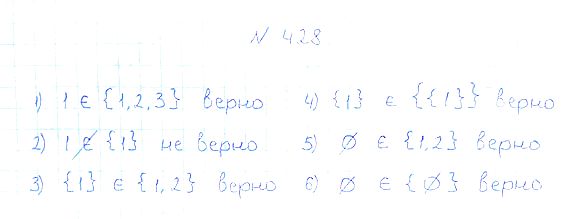 N 428
1) 1 ∈ {1,2,3} верно
2) 1 ∉ {1} не верно
3) {1} ∈ {1,2} верно
4) {1} ∈ {{1}} верно
5) ∅ ∈ {1,2} верно
6) ∅ ∈ {∅} верно